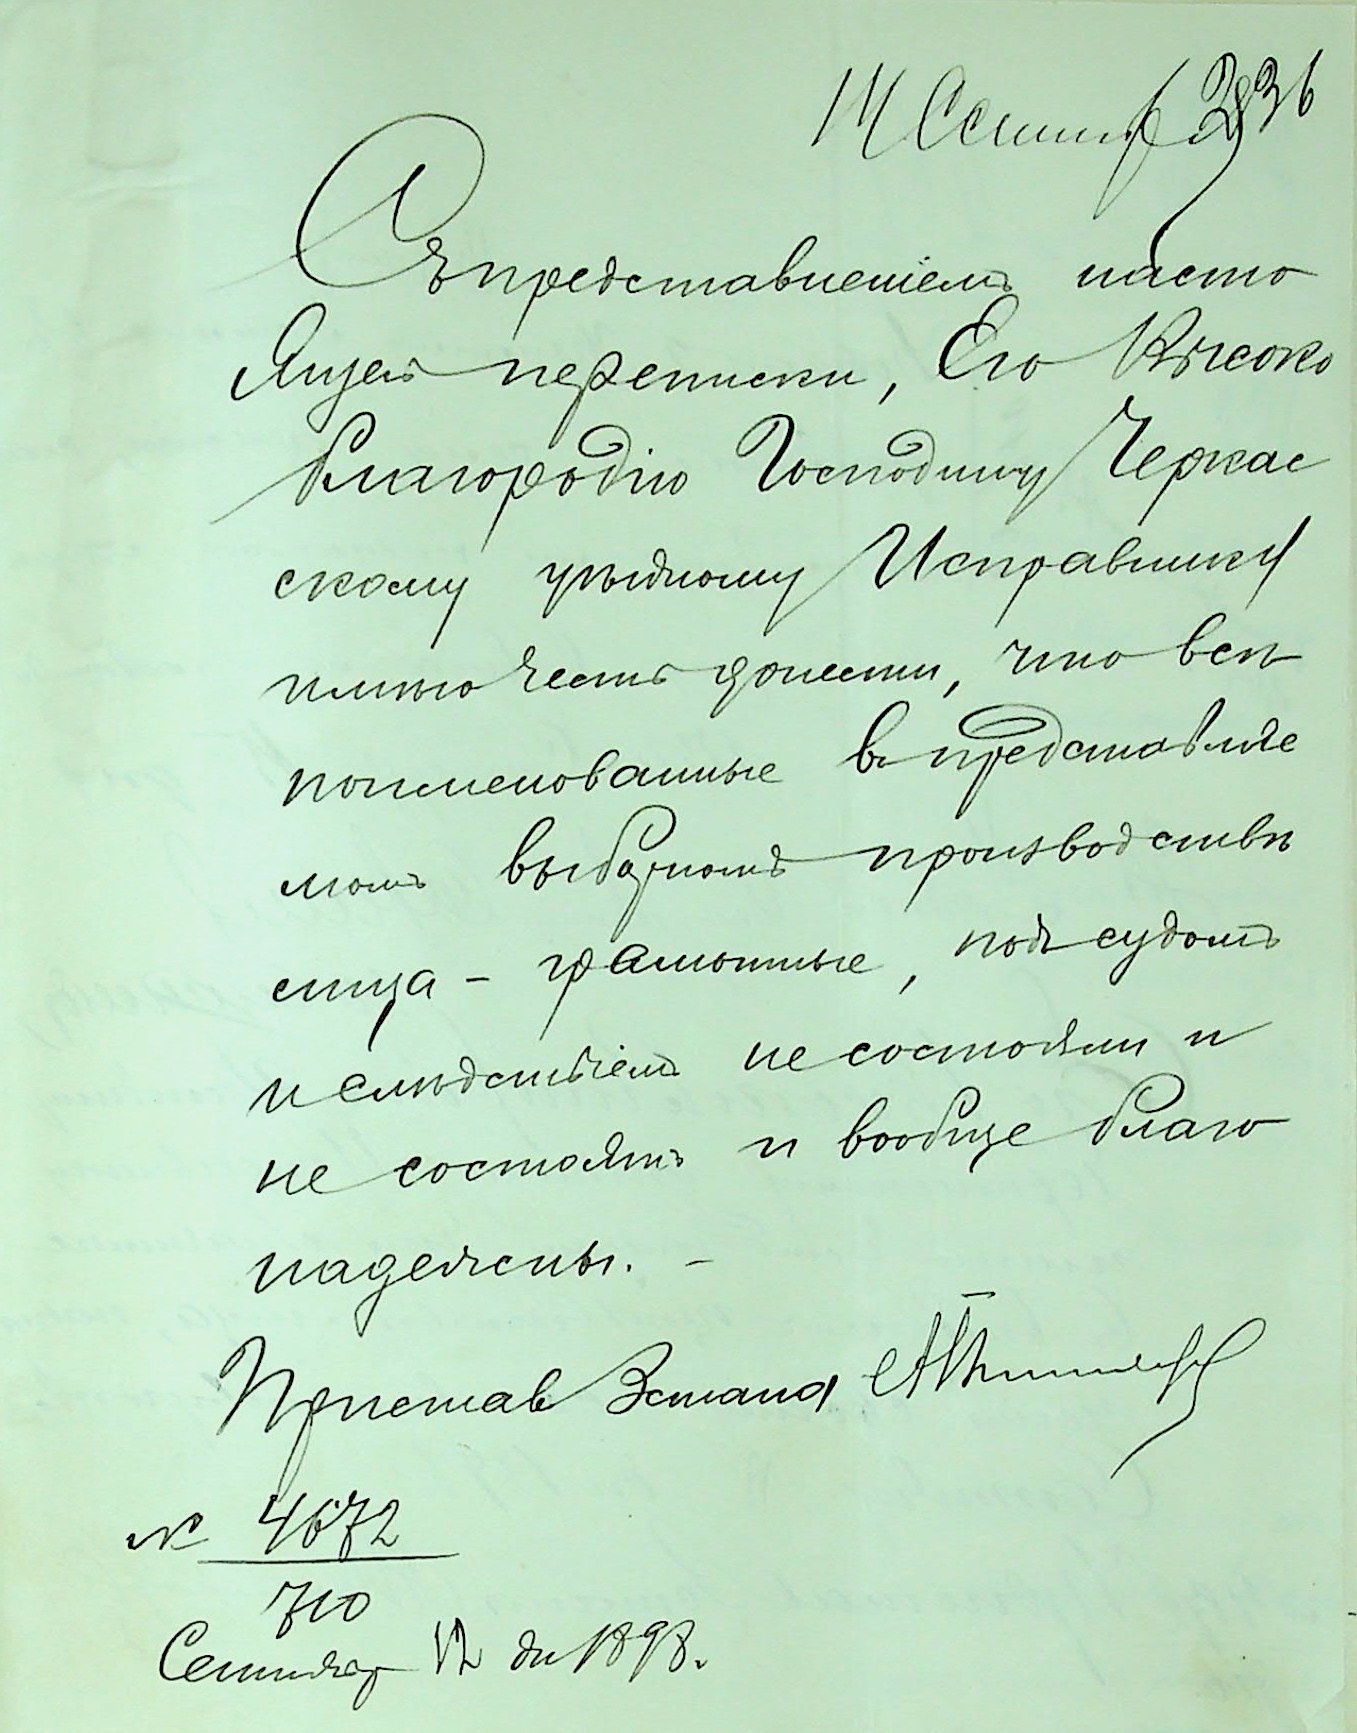 14 Сентяб 2836
Съ представленіемъ насто
ящей переписки, Его Высоко
благородію Господину Черкас
скому уѣздному Исправнику
имѣю честь донести, что всѣ
поименованные въ представляе
момъ выборномъ производствѣ
лица - грамотные, подъ судомъ
и слѣдствіемъ не состояли и
не состоятъ и вообще благо
надежны. -
Приставъ 3 стана
№ 4672
710
Сентября 12 дн 1898.